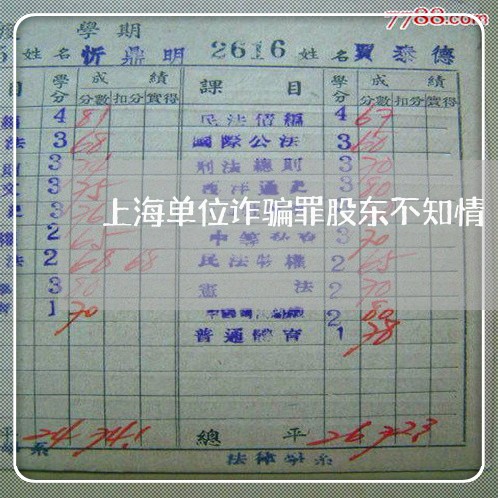 7788.com
學期
姓名 忻鼎明 2616 姓名 賈泰德
目 學分 成績 課目 學分 成績
分數 扣分 實得 分數 扣分 實得
4 81 民法債編 4 67
法 3 68 國際公法 3 60
3 刑法總則 3 70
3 75 西洋通史 3 80
上海单位诈骗罪股东不知情
2 65 3 70
法 2 68 68 民法物權 2 65
3 80 憲法 2 70
1 70 2 80
普通體育 1 78
平 24 74.1 總平 26 72.3
系 法律學系